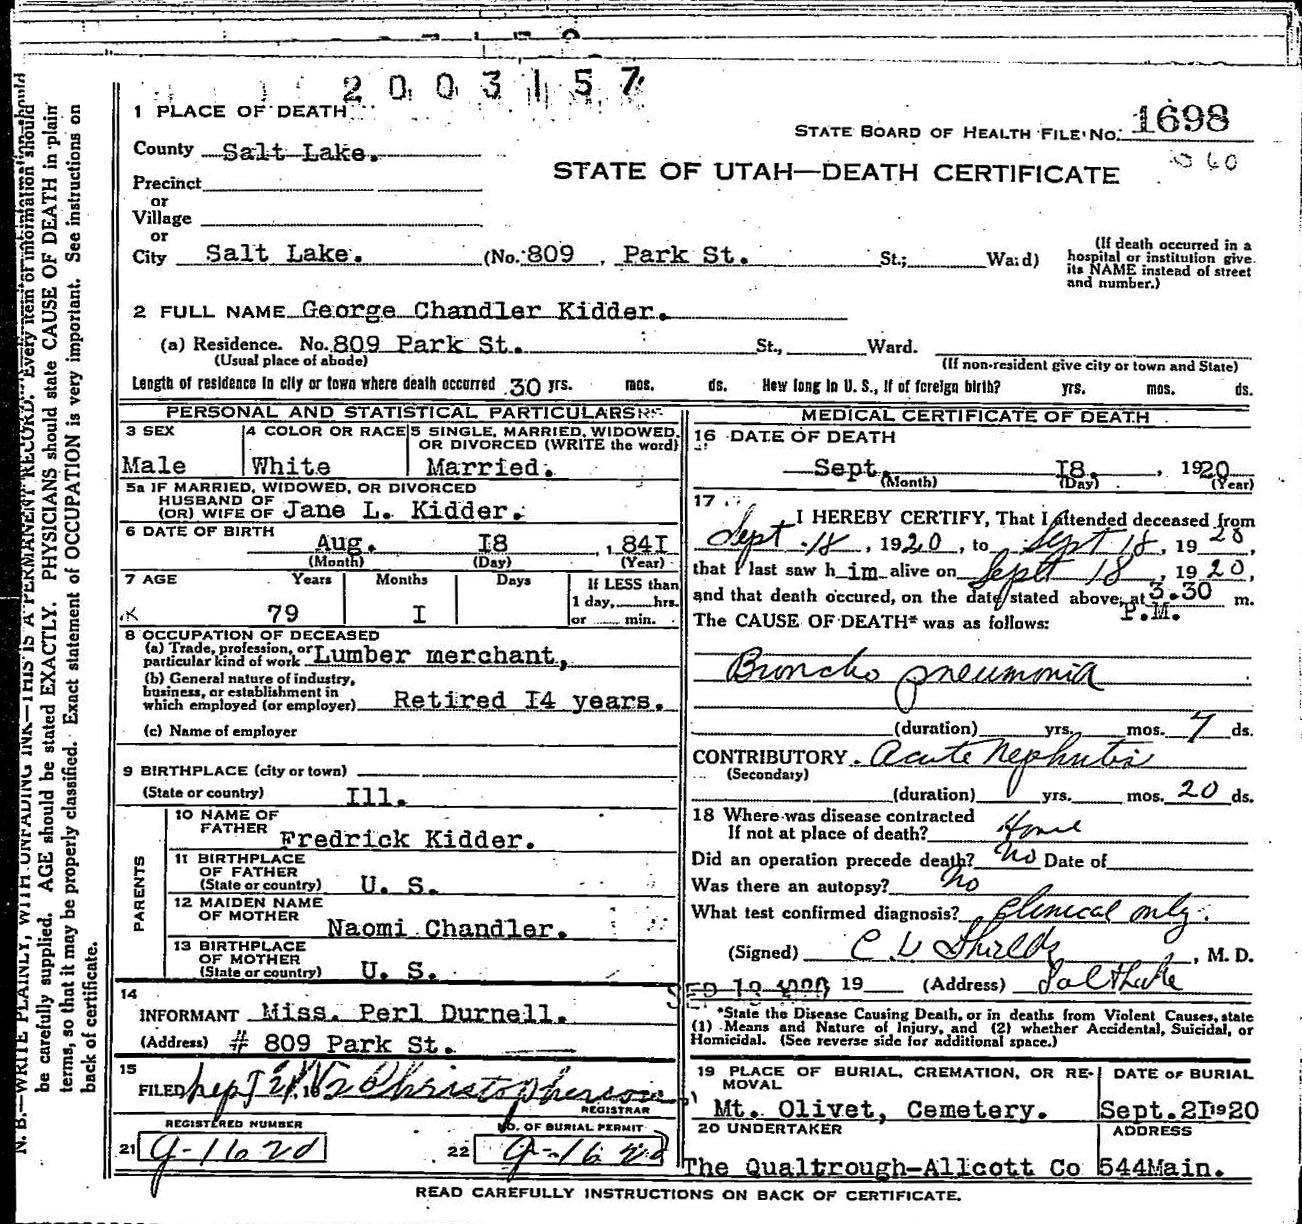 2003157
1 PLACE OF DEATH
STATE BOARD OF HEALTH FILE NO. 1698
County Salt Lake.
STATE OF UTAH—DEATH CERTIFICATE
Precinct
or
Village
or
City Salt Lake. (No. 809 , Park St. St.; Ward)
(If death occurred in a
hospital or institution give
its NAME instead of street
and number.)
2 FULL NAME George Chandler Kidder.
(a) Residence. No. 809 Park St. St., Ward.
(Usual place of abode) (If non-resident give city or town and State)
Length of residence in city or town where death occurred 30 yrs. mos. ds. How long in U. S., if of foreign birth? yrs. mos. ds.
PERSONAL AND STATISTICAL PARTICULARS
3 SEX
Male
4 COLOR OR RACE
White
5 SINGLE, MARRIED, WIDOWED,
OR DIVORCED (WRITE the word)
Married.
5a IF MARRIED, WIDOWED, OR DIVORCED
HUSBAND OF
(OR) WIFE OF Jane L. Kidder.
6 DATE OF BIRTH
Aug. I8 , 184I
(Month) (Day) (Year)
7 AGE Years Months Days If LESS than
1 day, hrs.
79 I or min.
8 OCCUPATION OF DECEASED
(a) Trade, profession, or
particular kind of work Lumber merchant,
(b) General nature of industry,
business, or establishment in
which employed (or employer) Retired I4 years.
(c) Name of employer
9 BIRTHPLACE (city or town)
(State or country) Ill.
PARENTS
10 NAME OF
FATHER Fredrick Kidder.
11 BIRTHPLACE
OF FATHER
(State or country) U. S.
12 MAIDEN NAME
OF MOTHER Naomi Chandler.
13 BIRTHPLACE
OF MOTHER
(State or country) U. S.
14
INFORMANT Miss. Perl Durnell.
(Address) # 809 Park St.
15
FILED Christopherson
REGISTRAR
REGISTERED NUMBER
21 9-1620
NO. OF BURIAL PERMIT
22
MEDICAL CERTIFICATE OF DEATH
16 DATE OF DEATH
Sept. I8. , 1920
(Month) (Day) (Year)
17
I HEREBY CERTIFY, That I attended deceased from
Sept. 18 , 1920 , to Sept 18 , 1920,
that I last saw him alive on Sept 18 , 1920,
and that death occured, on the date stated above, at 3.30 m.
P.M.
The CAUSE OF DEATH* was as follows:
Broncho pneumonia
(duration) yrs. mos. 7 ds.
CONTRIBUTORY. Acute Nephritis
(Secondary)
(duration) yrs. mos. 20 ds.
18 Where was disease contracted
If not at place of death? Home
Did an operation precede death? No Date of
Was there an autopsy? No
What test confirmed diagnosis? Clinical only.
(Signed) C L Shields , M. D.
19 (Address) Salt Lake
*State the Disease Causing Death, or in deaths from Violent Causes, state
(1) Means and Nature of Injury, and (2) whether Accidental, Suicidal, or
Homicidal. (See reverse side for additional space.)
19 PLACE OF BURIAL, CREMATION, OR RE-
MOVAL
Mt. Olivet, Cemetery.
DATE OF BURIAL
Sept. 2I 1920
20 UNDERTAKER
The Qualtrough-Allcott Co
ADDRESS
544Main.
READ CAREFULLY INSTRUCTIONS ON BACK OF CERTIFICATE.
N. B.—WRITE PLAINLY, WITH UNFADING INK—THIS IS A PERMANENT RECORD. Every item of information should
be carefully supplied. AGE should be stated EXACTLY. PHYSICIANS should state CAUSE OF DEATH in plain
terms, so that it may be properly classified. Exact statement of OCCUPATION is very important. See instructions on
back of certificate.